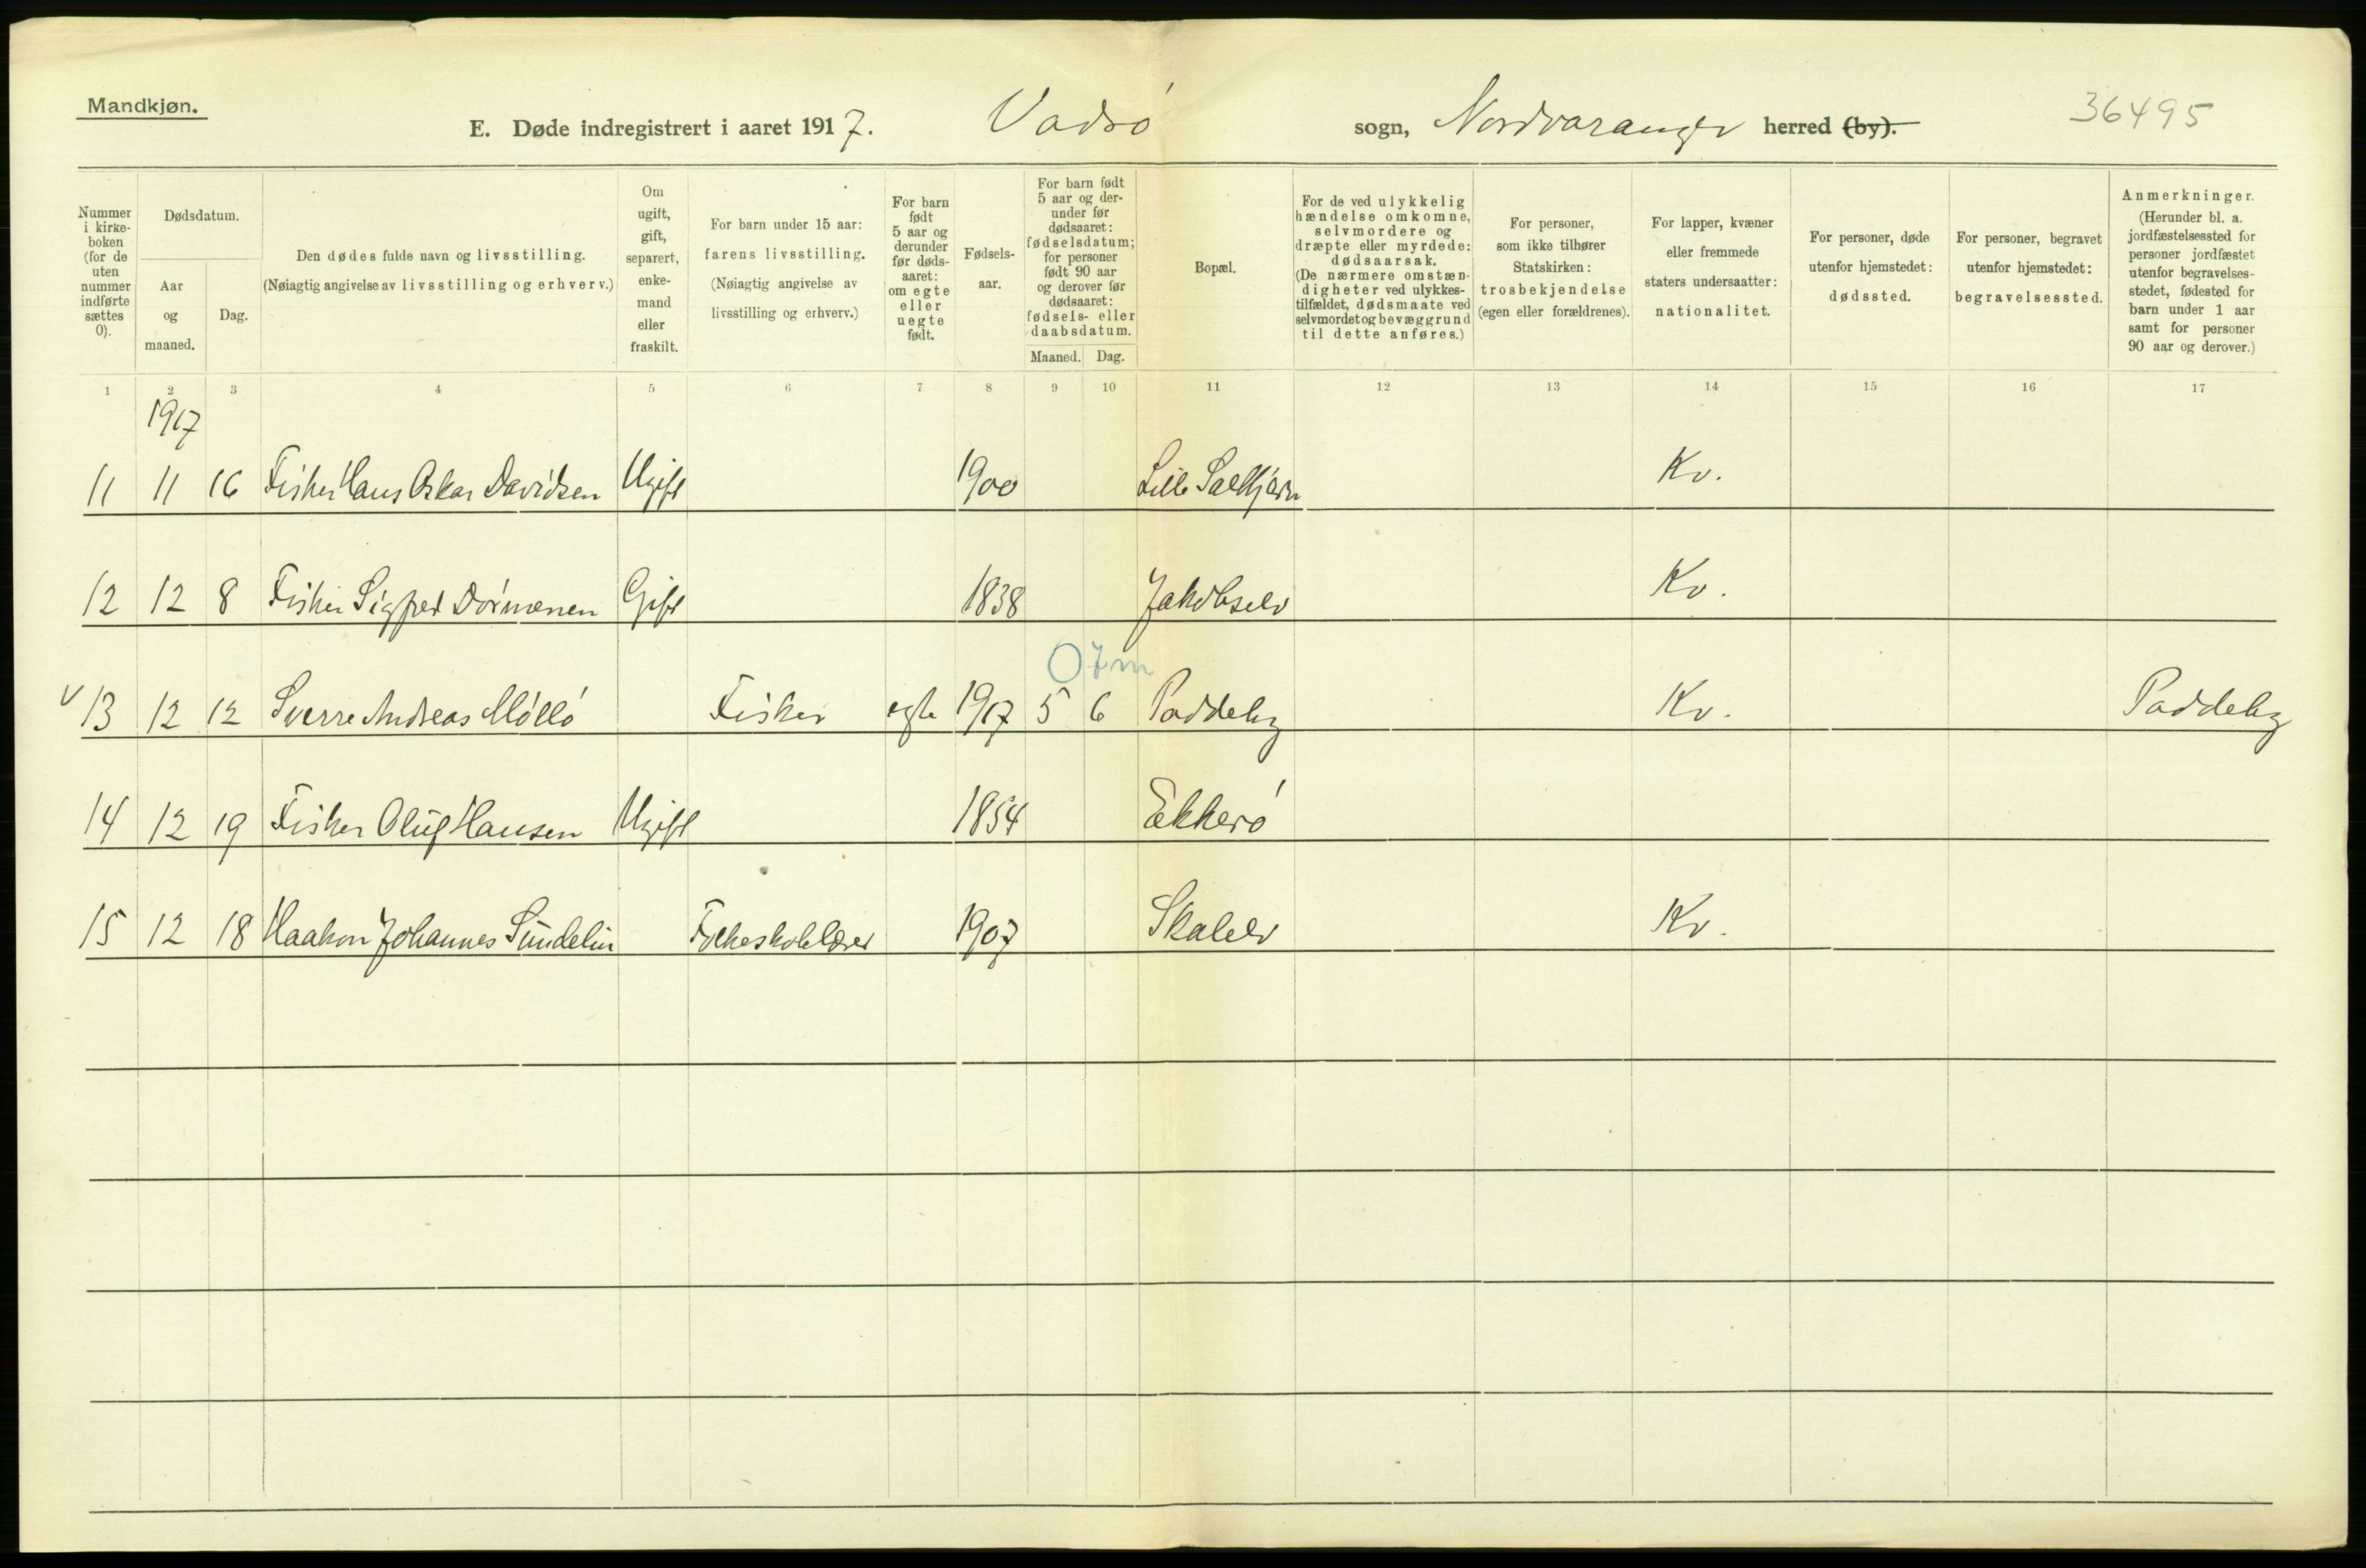 Mandkjøn.
E. Døde indregistrert i aaret 1917. Vadsö sogn, Nordvaranger herred (by). 36495
Nummer i kirke-boken (for de uten nummer indførte sættes 0).
Dødsdatum.
Aar og maaned.
Dag.
Den dødes fulde navn og livsstilling.
(Nøiagtig angivelse av livsstilling og erhverv.)
Om ugift, gift, separert, enke-mand eller fraskilt.
For barn under 15 aar:
farens livsstilling.
(Nøiagtig angivelse av livsstilling og erhverv.)
For barn født 5 aar og derunder før døds-aaret: om egte eller uegte født.
Fødsels-aar.
For barn født 5 aar og der-under før dødsaaret: fødselsdatum; for personer født 90 aar og derover før dødsaaret: fødsels- eller daabsdatum.
Maaned. Dag.
Bopæl.
For de ved ulykkelig hændelse omkomne, selvmordere og dræpte eller myrdede: dødsaarsak.
(De nærmere omstæn-digheter ved ulykkes-tilfældet, dødsmaate ved selvmordet og bevæggrund til dette anføres.)
For personer, som ikke tilhører Statskirken: trosbekjendelse (egen eller forældrenes).
For lapper, kvæner eller fremmede staters undersaatter: nationalitet.
For personer, døde utenfor hjemstedet: dødssted.
For personer, begravet utenfor hjemstedet: begravelsessted.
Anmerkninger.
(Herunder bl. a. jordfæstelsessted for personer jordfæstet utenfor begravelses-stedet, fødested for barn under 1 aar samt for personer 90 aar og derover.)
1 2 3 4 5 6 7 8 9 10 11 12 13 14 15 16 17
1917
11 11 16 Fisker Hans Oskar Davidsen Ugift 1900 Lille Kv.
12 12 8 Fisker Sigfred Gift 1838 Jakobselv Kv.
0 7 m
v 13 12 12 Sverre Andreas Mölló Fisker egte 1917 5 6 Paddeby Kv. Paddeby
14 12 19 Fisker Oluf Hansen Ugift 1854 Ekkerö
15 12 18 Haakon Johannes Sundelin Folkeskolelærer 1907 Skalelv Kv.